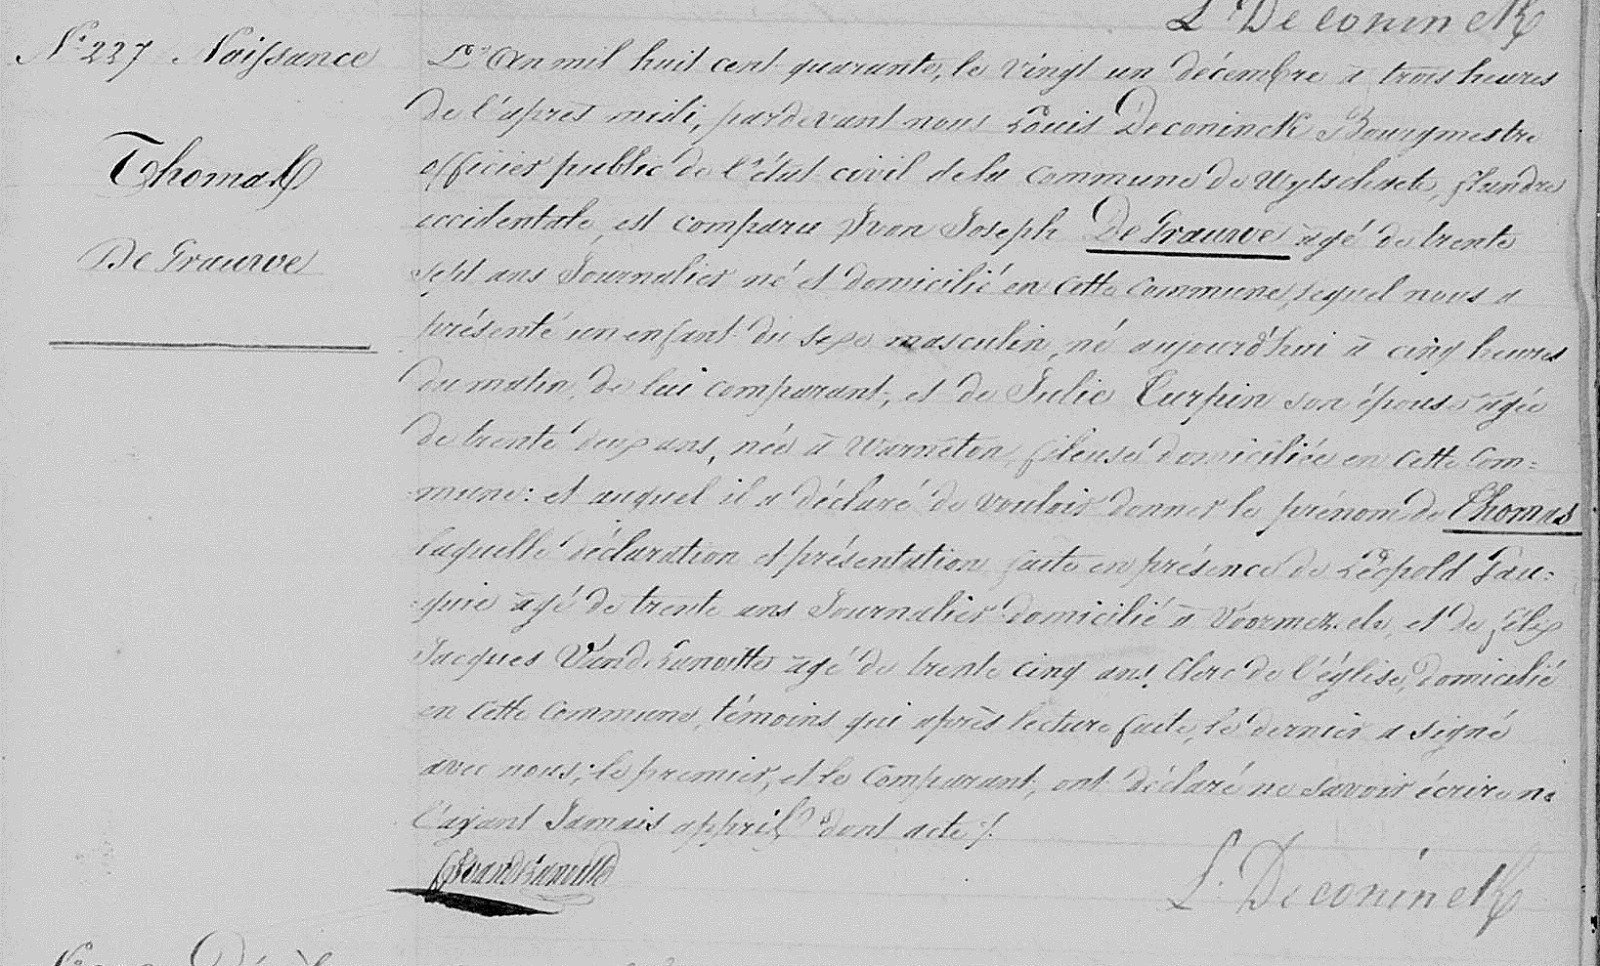 L. Deconinck
N° 227 Naissance
Thomas
De Grauwe
L'An mil huit cent quarante, le vingt un décembre à trois heures
de l'après midi, pardevant nous Louis Deconinck Bourgmestre
officier public de l'état civil de la commune de Wytschaete, flandre
occidentale, est comparu Ivon Joseph De Grauwe agé de trente
sept ans Journalier né et domicilié en cette commune, lequel nous a
présenté un enfant du sexe masculin, né aujourd'hui à cinq heures
du matin, de lui comparant, et de Julie Turpin son épouse agée
de trente deux ans, née à Warneton, fileuse domiciliée en cette Com=
mune: et auquel il a déclaré de vouloir donner le prénom de Thomas
laquelle déclaration et présentation faite en présence de Léopold Gau=
=quie agé de trente ans Journalier domicilié à Voormezele, et de Félix
Jacques VandLanoitte agé de trente cinq ans, Clerc de l'église, domicilié
en cette commune, témoins qui après lecture faite, le dernier a signé
avec nous; le premier, et le Comparant, ont déclaré ne savoir écrire ne
l'ayant Jamais appris dont acte ⁒.
L. Deconinck